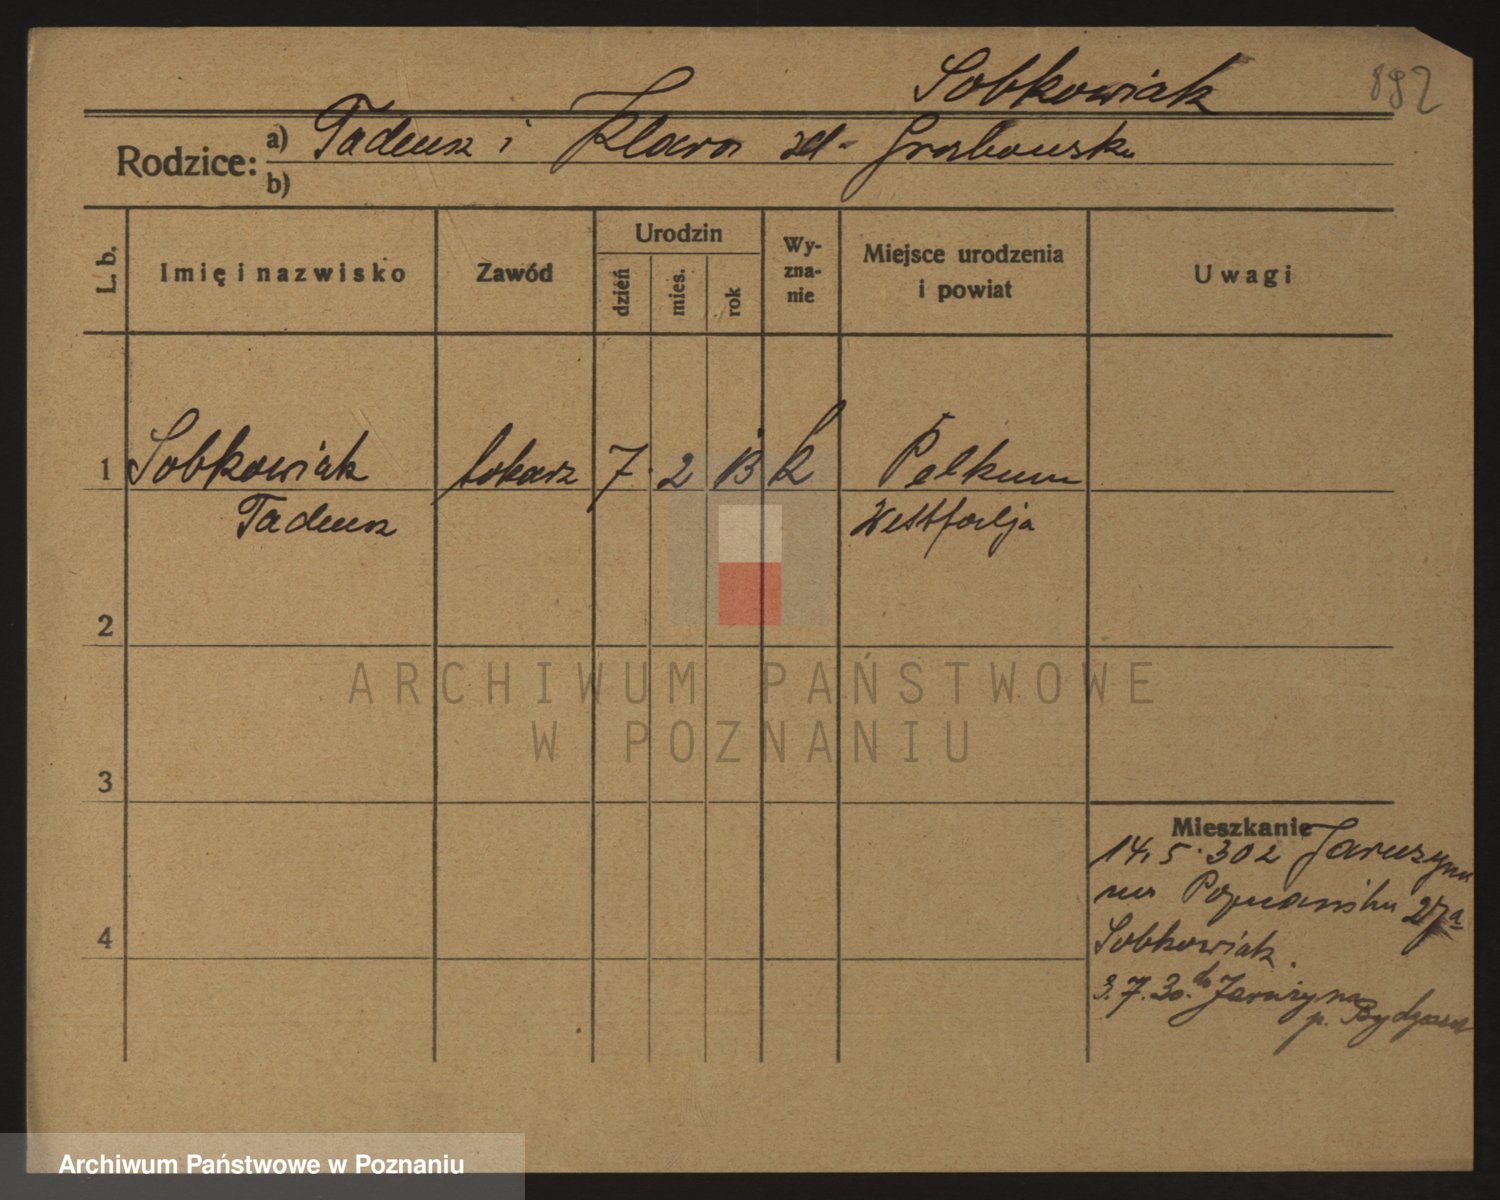 Sobkowiak
892
Rodzice: a) Tadeusz i Klara zd. Grabowska
b)
L. b.
Imię i nazwisko
Zawód
Urodzin
dzień
mies.
rok
Wy-
zna-
nie
Miejsce urodzenia
i powiat
Uwagi
1 Sobkowiak tokarz 7. 2 13 k Pelkum
Tadeusz Westfalja
2
3
4
Mieszkanie
14. 5. 302 Jaruzyna
na Poznańska 27a
Sobkowiak.
3. 7. 30. do Jarużyna
p. Bydgoszcz
ARCHIWUM PAŃSTWOWE
W POZNANIU
Archiwum Państwowe w Poznaniu